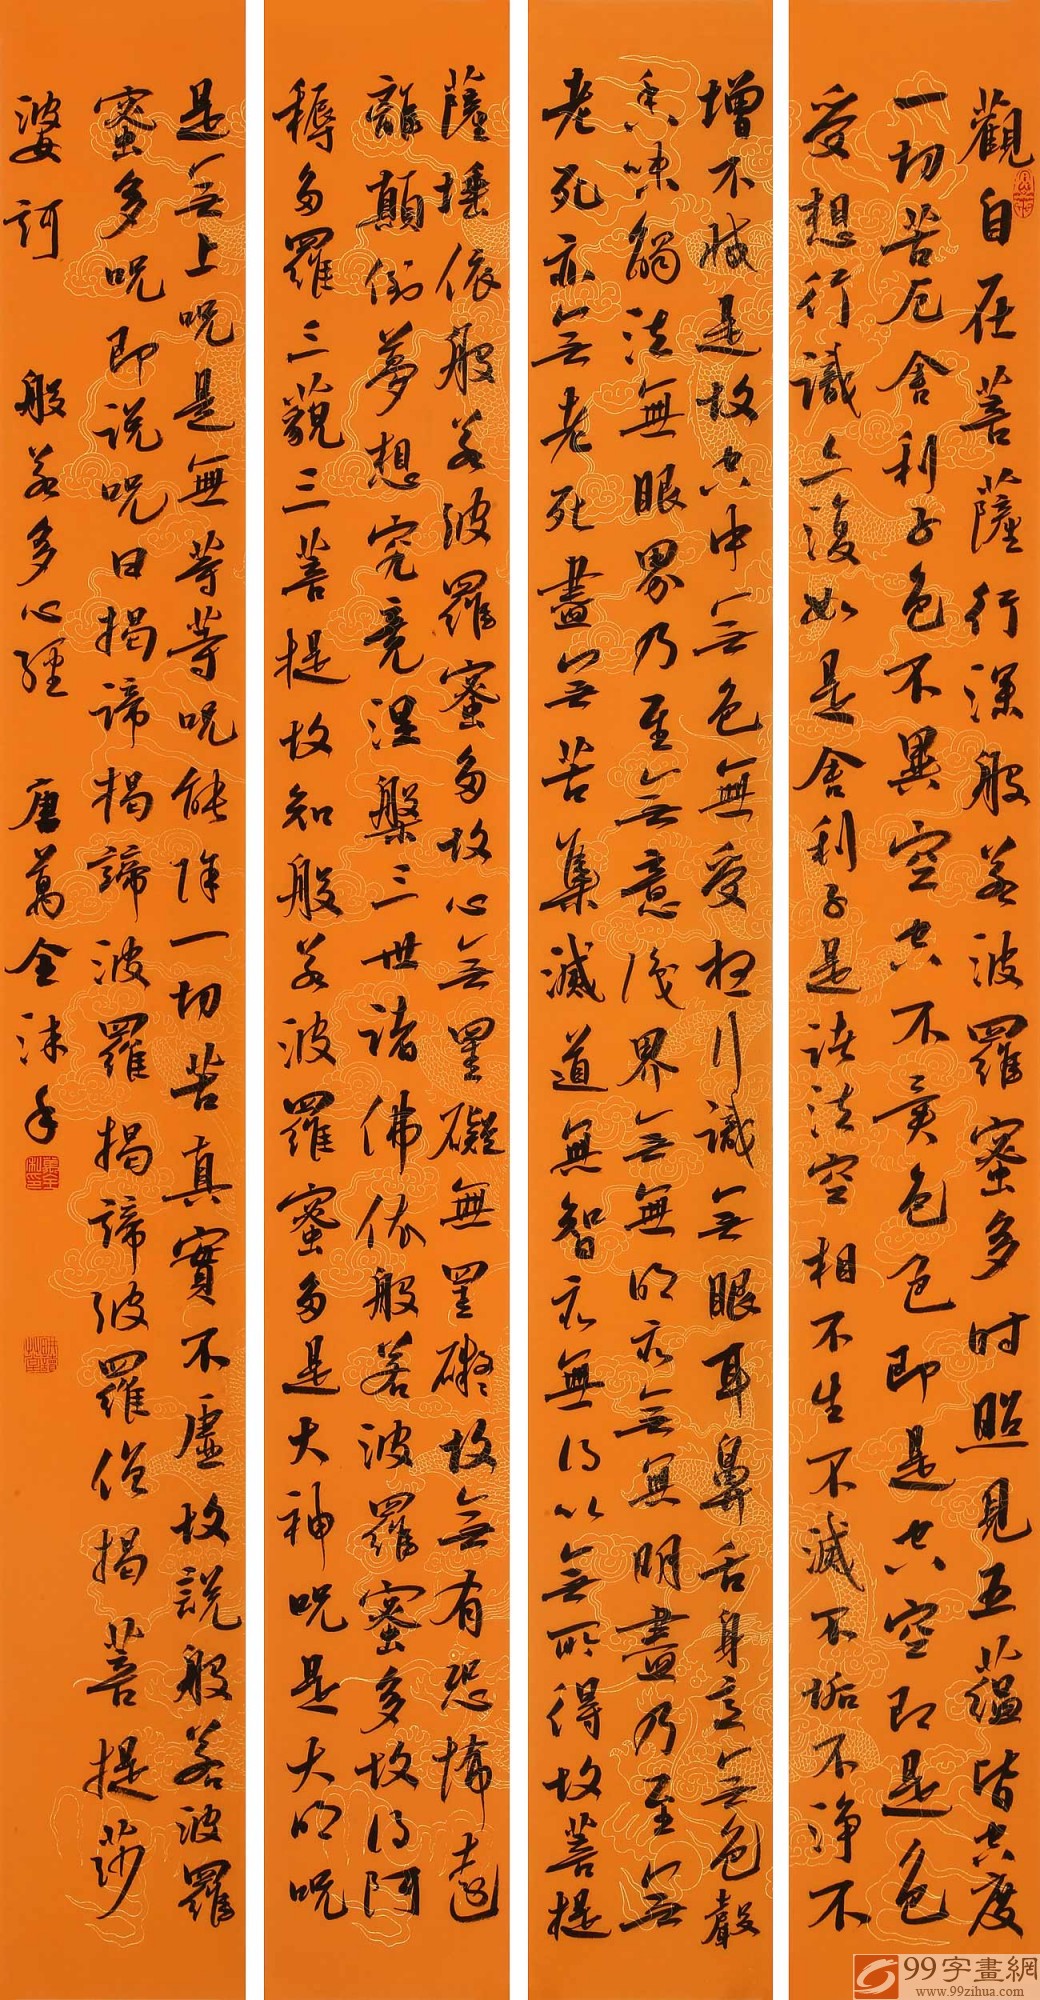 觀自在菩薩行深般若波羅蜜多时照見五蘊皆空度
一切苦厄舍利子色不異空空不異色色即是空空即是色
受想行識亦復如是舍利子是諸法空相不生不滅不垢不淨不
增不減是故空中無色無受想行識無眼耳鼻舌身意無色聲
香味觸法無眼界乃至無意識界無無明亦無無明盡乃至無
老死亦無老死盡無苦集滅道無智亦無得以無所得故菩提
薩埵依般若波羅蜜多故心無罣礙無罣礙故無有恐怖遠
離顛倒夢想究竟涅槃三世諸佛依般若波羅蜜多故得阿
耨多羅三藐三菩提故知般若波羅蜜多是大神呪是大明呪
是無上呪是無等等呪能除一切苦真實不虛故説般若波羅
蜜多呪即说呪曰揭諦揭諦波羅揭諦波羅僧揭菩提莎
婆訶 般若多心經 唐萬全沐手
99字畫網
www.99zihua.com